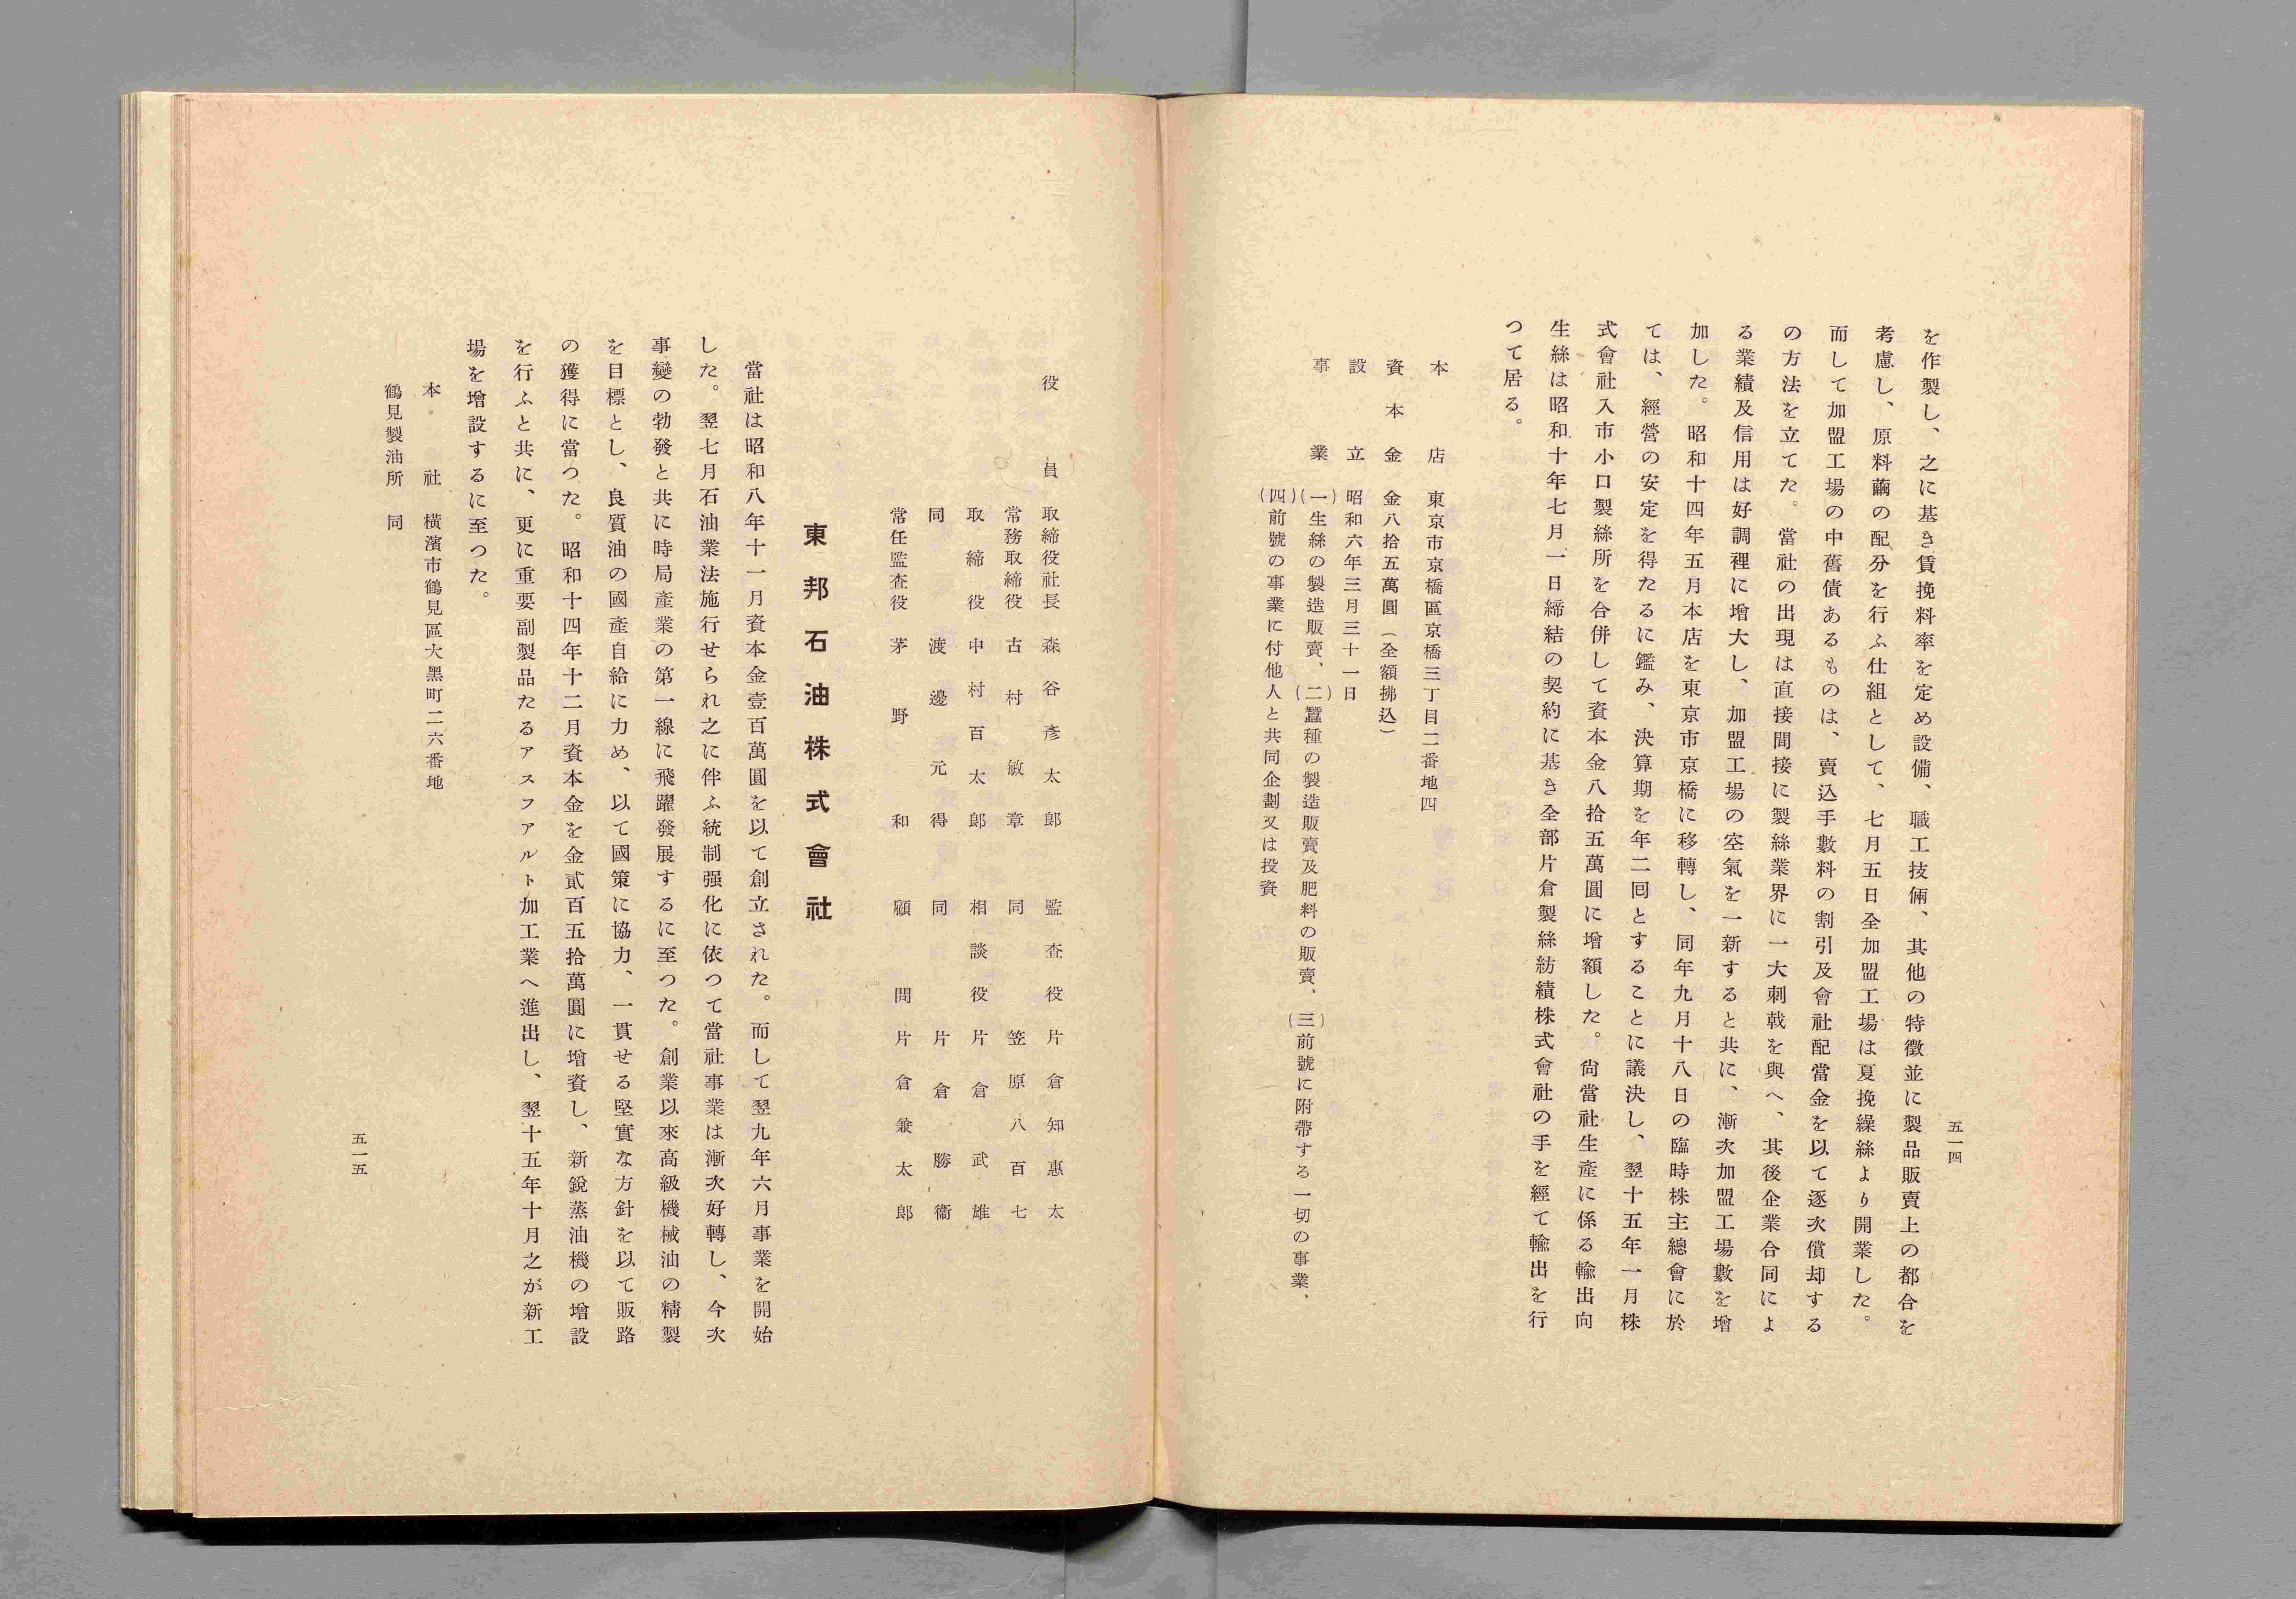 を作製し、之に基き賃挽料率を定め設備、職工技倆、其他の特徴並に製品販賣上の都合を
考慮し、原料繭の配分を行ふ仕組として、七月五日全加盟工場は夏挽繰絲より開業した。
而して加盟工場の中舊債あるものは、賣込手數料の割引及會社配當金を以て逐次償却する
の方法を立てた。當社の出現は直接間接に製絲業界に一大刺戟を與へ、其後企業合同によ
る業績及信用は好調裡に增大し、加盟工場の空氣を一新すると共に、漸次加盟工場數を增
加した。昭和十四年五月本店を東京市京橋に移轉し、同年九月十八日の臨時株主總會に於
ては、經營の安定を得たるに鑑み、決算期を年二囘とすることに議決し、翌十五年一月株
式會社入市小口製絲所を合併して資本金八拾五萬圓に增額した。尙當社生產に係る輸出向
生絲は昭和十年七月一日締結の契約に基き全部片倉製絲紡績株式會社の手を經て輸出を行
つて居る。
本店 東京市京橋區京橋三丁目二番地四
資本金 金八拾五萬圓(全額拂込)
設立 昭和六年三月三十一日
事業 (一)生絲の製造販賣、(二)蠶種の製造販賣及肥料の販賣、(三)前號に附帶する一切の事業、
(四)前號の事業に付他人と共同企劃又は投資
五一四
役員 取締役社長 森谷彥太郎 監査役 片倉知惠太
常務取締役 古村敏章 同 笠原八百七
取締役 中村百太郎 相談役 片倉武雄
同 渡邊元得 同 片倉勝衞
常任監査役 茅野和 顧問 片倉兼太郎
東邦石油株式會社
當社は昭和八年十一月資本金壹百萬圓を以て創立された。而して翌九年六月事業を開始
した。翌七月石油業法施行せられ之に伴ふ統制强化に依つて當社事業は漸次好轉し、今次
事變の勃發と共に時局產業の第一線に飛躍發展するに至つた。創業以來高級機械油の精製
を目標とし、良質油の國產自給に力め、以て國策に協力、一貫せる堅實な方針を以て販路
の獲得に當つた。昭和十四年十二月資本金を金貳百五拾萬圓に增資し、新銳蒸油機の增設
を行ふと共に、更に重要副製品たるアスファルト加工業へ進出し、翌十五年十月之が新工
場を增設するに至つた。
本社 橫濱市鶴見區大黑町二六番地
鶴見製油所 同
五一五